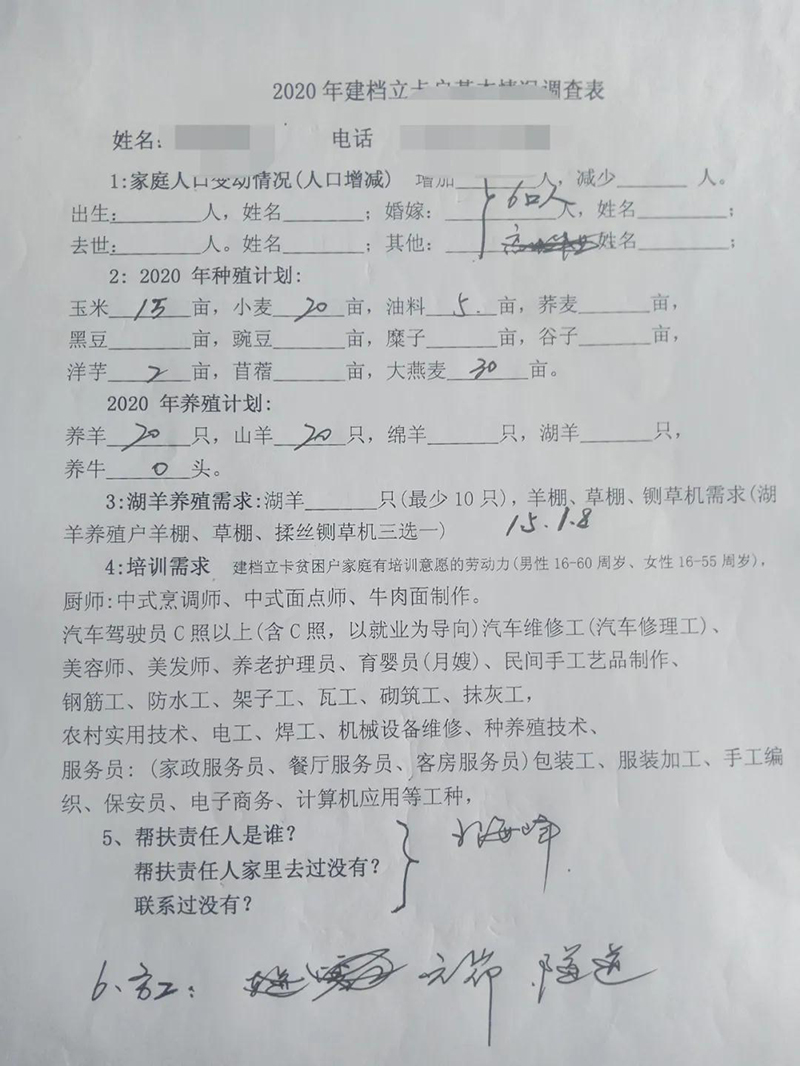 2020年建档立卡户基本情况调查表
姓名: 电话
1:家庭人口变动情况(人口增减) 增加______人,减少______ 人。
6口人
出生:______人,姓名______;婚嫁:______人,姓名______;
去世:______人。姓名______;其他:______姓名______;
2: 2020 年种殖计划:
玉米 15 亩,小麦 20 亩,油料 5. 亩,荞麦______亩,
黑豆______亩,豌豆______亩,糜子______亩,谷子______亩,
洋芋 2 亩,苜蓿______亩,大燕麦 30 亩。
2020 年养殖计划:
养羊 20 只,山羊 20 只,绵羊______只,湖羊______只,
养牛 0 头。
3:湖羊养殖需求:湖羊______只(最少10只),羊棚、草棚、铡草机需求(湖
羊养殖户羊棚、草棚、揉丝铡草机三选一) 15.1.8
4:培训需求 建档立卡贫困户家庭有培训意愿的劳动力(男性16-60周岁、女性16-55周岁),
厨师:中式烹调师、中式面点师、牛肉面制作。
汽车驾驶员C照以上(含C照,以就业为导向)汽车维修工(汽车修理工)、
美容师、美发师、养老护理员、育婴员(月嫂)、民间手工艺品制作、
钢筋工、防水工、架子工、瓦工、砌筑工、抹灰工,
农村实用技术、电工、焊工、机械设备维修、种养殖技术、
服务员: (家政服务员、餐厅服务员、客房服务员)包装工、服装加工、手工编
织、保安员、电子商务、计算机应用等工种,
5、帮扶责任人是谁? 海峰
帮扶责任人家里去过没有?
联系过没有?
6、务工: 隧道